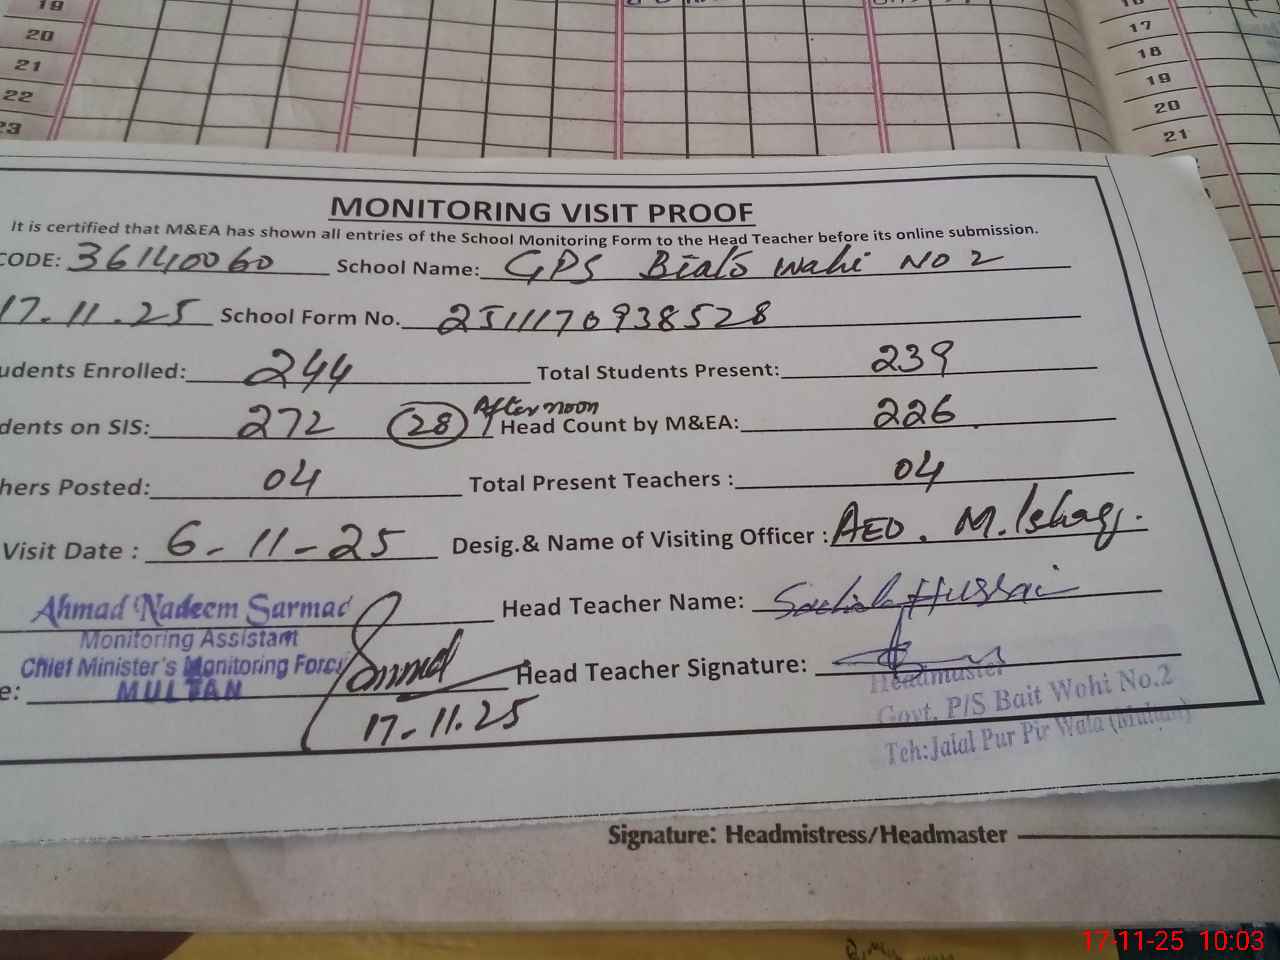 19
20
21
22
23
17
18
19
20
21
MONITORING VISIT PROOF
It is certified that M&EA has shown all entries of the School Monitoring Form to the Head Teacher before its online submission.
CODE: 36140060 School Name: GPS Wahi NO 2
17.11.25 School Form No. 251117093 8528
udents Enrolled: 244 Total Students Present: 239
dents on SIS: 272 (28) Afternoon Head Count by M&EA: 226
hers Posted: 04 Total Present Teachers : 04
Visit Date : 6-11-25 Desig.& Name of Visiting Officer : AEO. M. Ishaq.
Ahmad Nadeem Sarmad Head Teacher Name: Hussain
Monitoring Assistant
Chief Minister's Monitoring Force
MULTAN
e: Head Teacher Signature:
17-11.25
Headmaster
Govt. P/S Bait Wohi No.2
Teh:Jalal Pur Pir Wala (Multan)
Signature: Headmistress/Headmaster
17-11-25 10:03